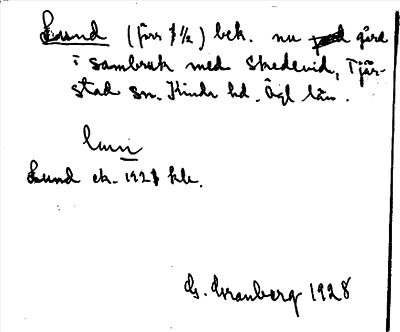 Lund (förr 1/2) bek. nu gård
i sambruk med Skedevid, Tjär-
stad sn. Kinds hd. Ögl län.
Lund ek. 1921 kb.
G. Granberg 1928